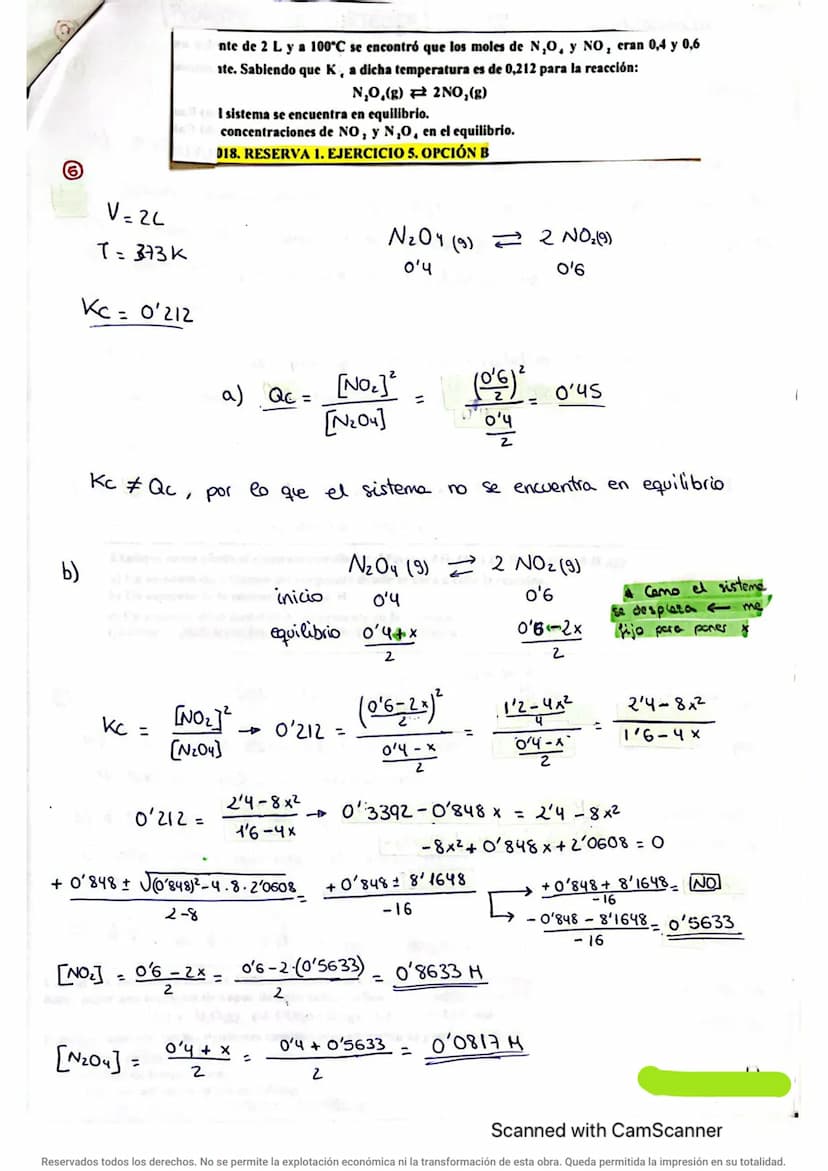 nte de 2 L y a 100°C se encontró que los moles de N₂O₄ y NO₂ eran 0,4 y 0,6
ste. Sabiendo que K꜀ a dicha temperatura es de 0,212 para la reacción:
N₂O₄(g) ⇄ 2NO₂(g)
l sistema se encuentra en equilibrio.
concentraciones de NO₂ y N₂O₄ en el equilibrio.
018. RESERVA 1. EJERCICIO 5. OPCIÓN B
⑥
V = 2L
T = 373K
N₂O₄ (g) ⇄ 2 NO₂(g)
0'4 0'6
Kc = 0'212
a) Qc = [NO₂]² / [N₂O₄] = (0'6/2)² / (0'4/2) = 0'45
Kc ≠ Qc, por lo que el sistema no se encuentra en equilibrio
b) N₂O₄ (g) ⇄ 2 NO₂ (g)
inicio 0'4 0'6
equilibrio (0'4+x)/2 (0'6-2x)/2
* Como el sistema
se desplaza ← me
fijo para poner x
Kc = [NO₂]² / [N₂O₄] → 0'212 = ((0'6-2x)/2)² / ((0'4-x)/2) = ((1'2-4x²)/4) / ((0'4-x)/2) = (2'4-8x²) / (1'6-4x)
0'212 = (2'4-8x²) / (1'6-4x) → 0'3392-0'848x = 2'4-8x²
-8x²+0'848x+2'0608 = 0
(+0'848 ± √(0'848)²-4.8.2'0608) / (2-8) = (+0'848 ± 8'1648) / -16
(+0'848+8'1648) / -16 = NO
(-0'848-8'1648) / -16 = 0'5633
[NO₂] = (0'6-2x)/2 = (0'6-2·(0'5633))/2 = 0'8633 M
[N₂O₄] = (0'4+x)/2 = (0'4+0'5633)/2 = 0'0817 M
Scanned with CamScanner
Reservados todos los derechos. No se permite la explotación económica ni la transformación de esta obra. Queda permitida la impresión en su totalidad.